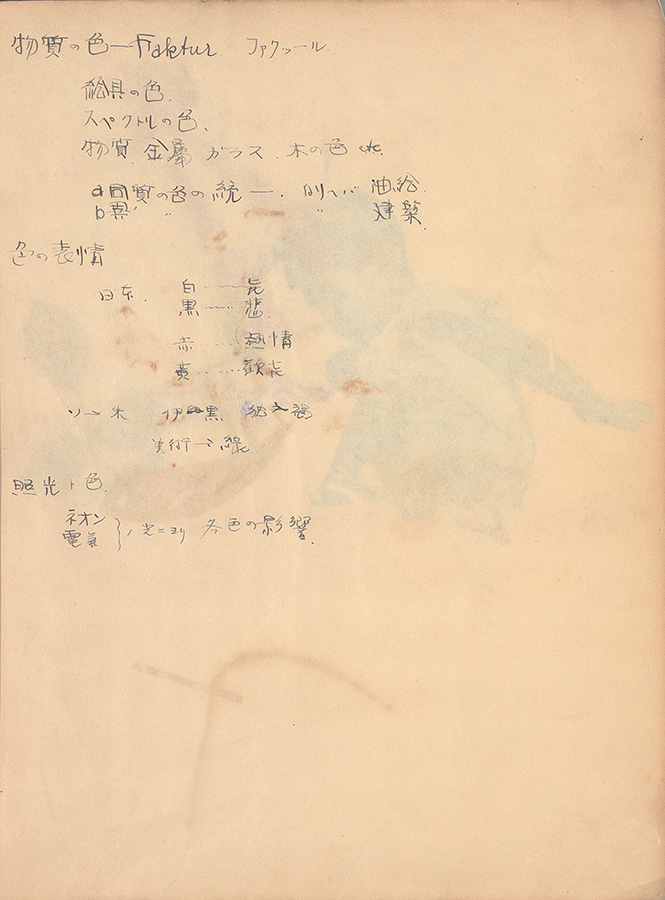 物質の色—Faktur ファクツール
絵具の色.
スペクトルの色、
物質. 金属 ガラス. 木の色 etc.
a 同質の色の統一. 例ヘバ 油絵.
b 異〃 〃 〃 建築.
色の表情
日本. 白……
黒……悲.
赤……熱情
黄……歓喜
ソ→赤 伊→黒
美術→緑.
照光ト色.
ネオン
電気 }ノ光ニヨリ 各色の影響.